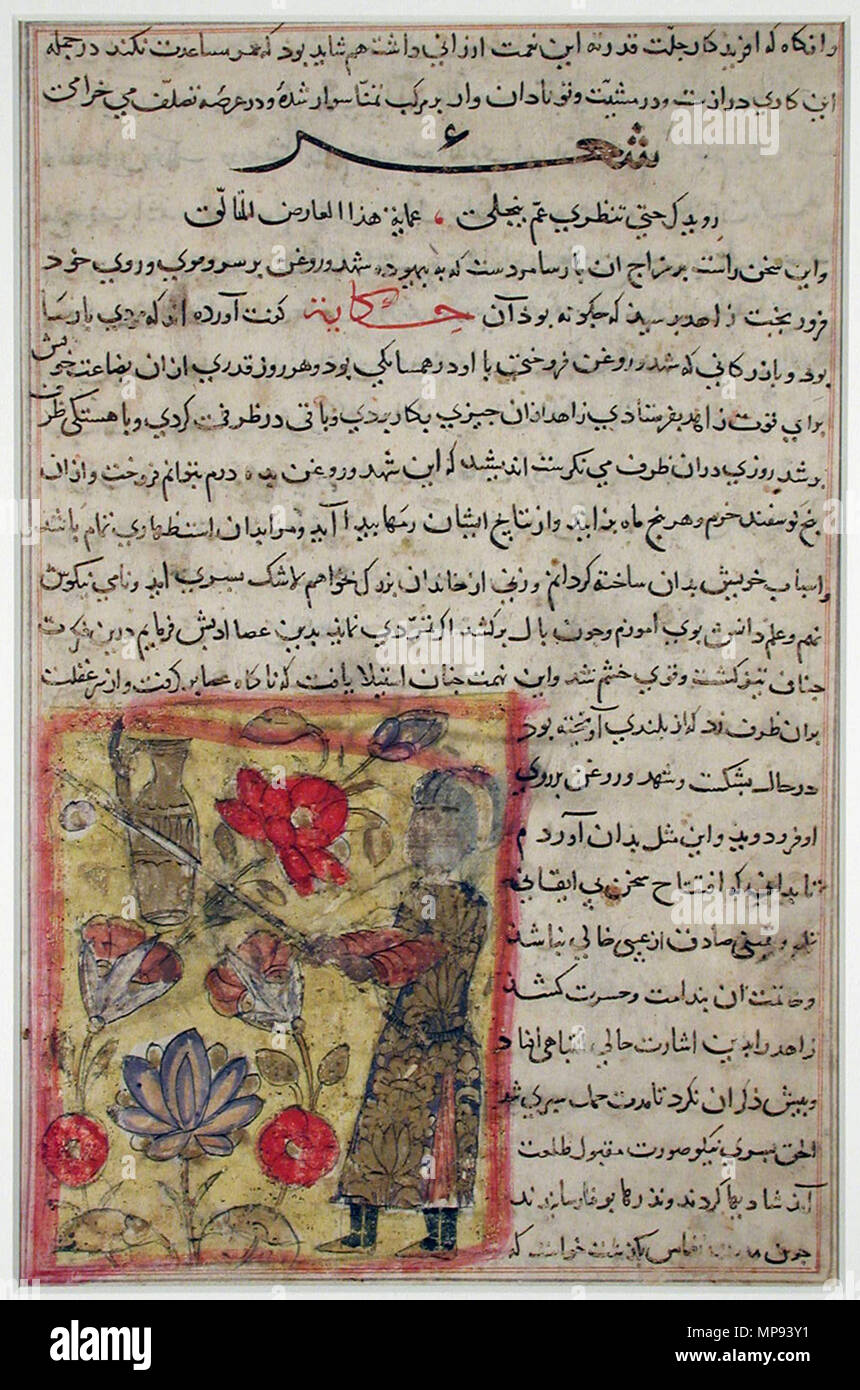 وانگاه که افریدکار جلّت قدرته این نعمت ارزانی داشت هم شاید بود که عمر مساعدت نکند در جمله
این کاری درازست و در مشیّت و تو نادان وار بر مرکب تمنّا سوار شدهٔ و در عرصه تصلّف می خرامی
شعر
رویدک حتی تنظری عمّ ینجلی عمایة هذا العارض المتألق
واین سخن راست بر مزاج ان پارسا مردست که به بیهوده شهد و روغن بر سر و موی و روی خود
فرو ریخت زاهد پرسید که چگونه بود آن حکایة گفت آورده اند که مردی پارسا
بود و بازرگانی که شهد و روغن فروختی با او در همسایکی بود و هر روز قدری از ان بضاعت خویش
برای قوت زاهد بفرستادی زاهد از ان چیزی بکار بردی و باقی در ظرفی کردی و باهستگی ظرف
پر شد روزی در ان ظرف می نکریست اندیشید که این شهد و روغن بده درم بتوانم فروخت و از ان
پنج گوسفند خرم و هر پنج ماه بزایند و از نتایج ایشان رمها پیدا آید و مرا بدان استظهاری تمام باشد
و اسباب خویش بدان ساخته گردانم و زنی از خاندان بزرگ بخواهم لاشک پسری اید و نامی نیکوش
نهم و علم و ادب بوی آموزم و چون یال برکشد اکر تمرّدی نماید بدین عصا ادبش فرمایم درین فکرت
چنان تیز گشت و قوی خشم شد و این نهمت چنان استیلا یافت که ناکاه عصا بر گرفت و از سر غفلت
بران ظرف زد که از بلندی آویخته بود
در حال بشکست و شهد و روغن بر روی
او فرو دوید و این مثل بدان آوردم
تا بدانی که افتتاح سخن بی ایقانی
تمام و یقینی صادق از عیبی خالی نباشد
و خاتمت ان بندامت و حسرت کشد
زاهد را بدین اشارت حالی انتباهی افتاد
و بیش ذکر ان نکرد تا مدت حمل سپری شد
الحق پسری نیکو صورت مقبول طلعت
آمد شادیها کردند و نذرها بوفا رسانیدند
چون مدت نفاس بگذشت خواست که
alamy
Image ID: MP93Y1
www.alamy.com